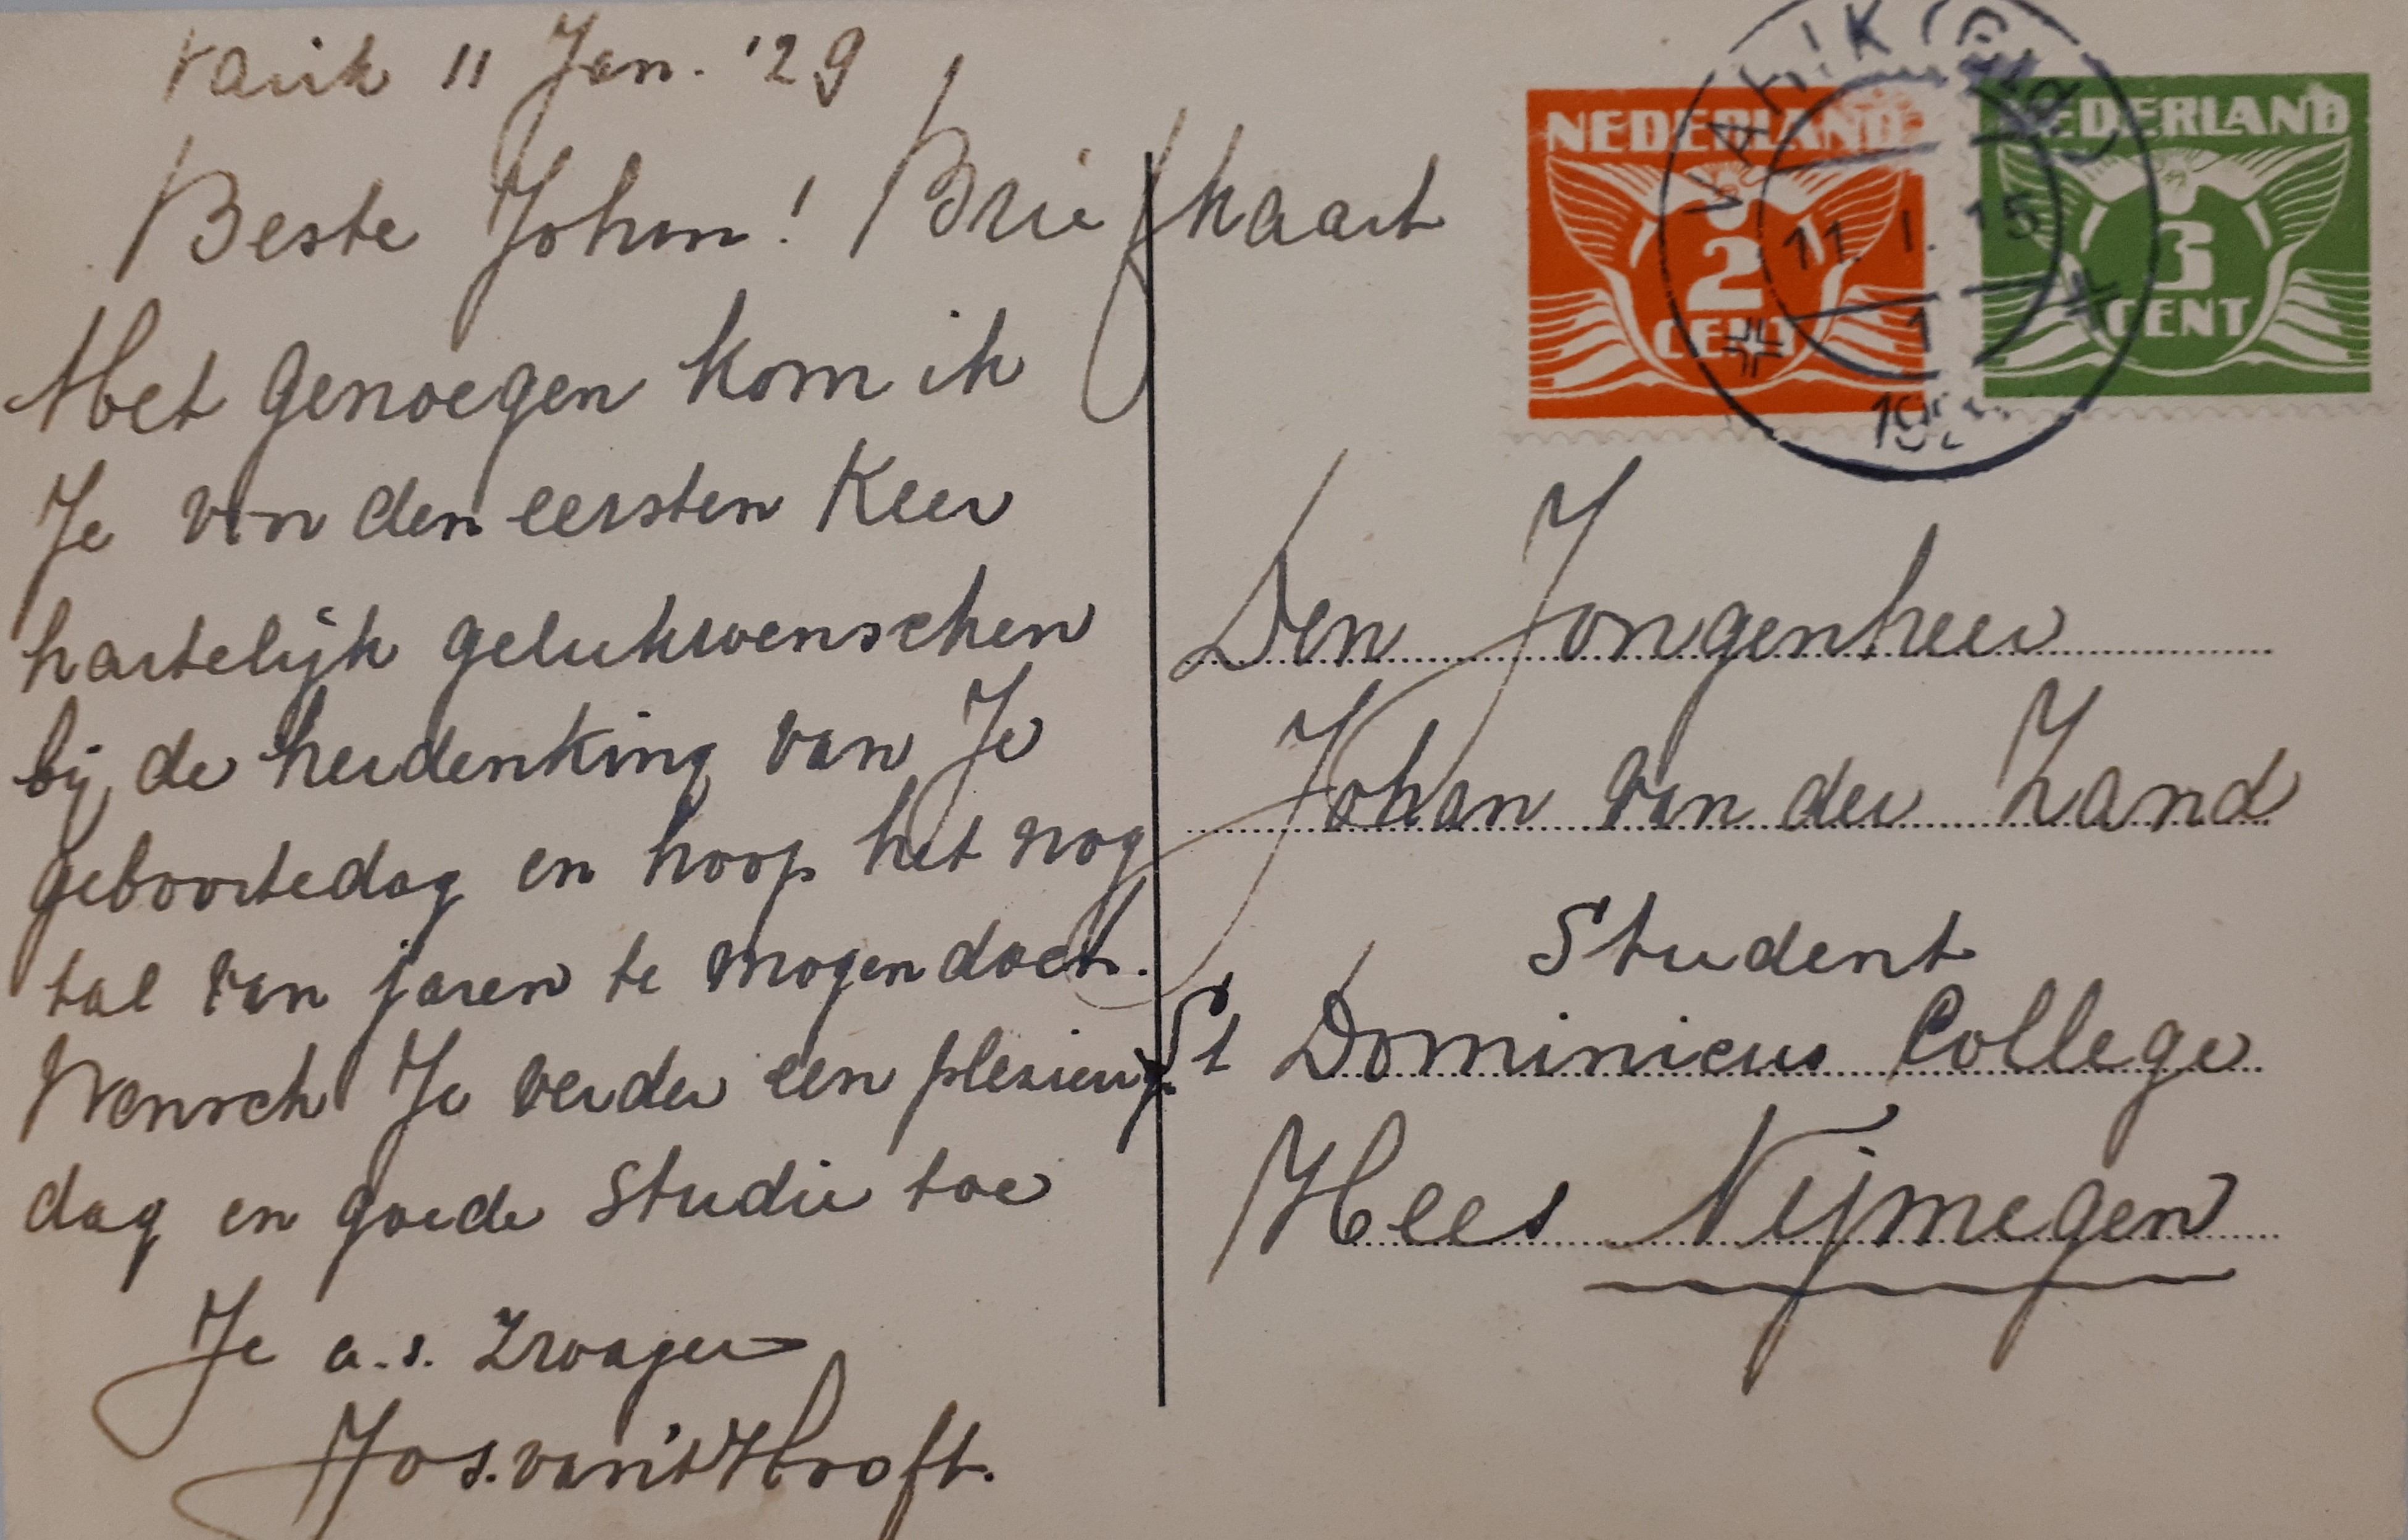 Varik 11 Jan. '29
Beste Johan! Briefkaart
Met genoegen kom ik
Je van den eersten Keer
hartelijk gelukwenschen
bij de herdenking van Je
geboortedag en hoop het nog
tal van jaren te mogen doen.
Wensch Je verder een plezierig.
dag en goede studie toe
Je a.s. Zwager
Jos. van't Hooft.
NEDERLAND
2
CENT
NEDERLAND
3
CENT
VARIK (Gld.)
11. 1. 15
1
Den Jongenheer
Johan van der Zand
Student
St Dominicus College
Hees Nijmegen